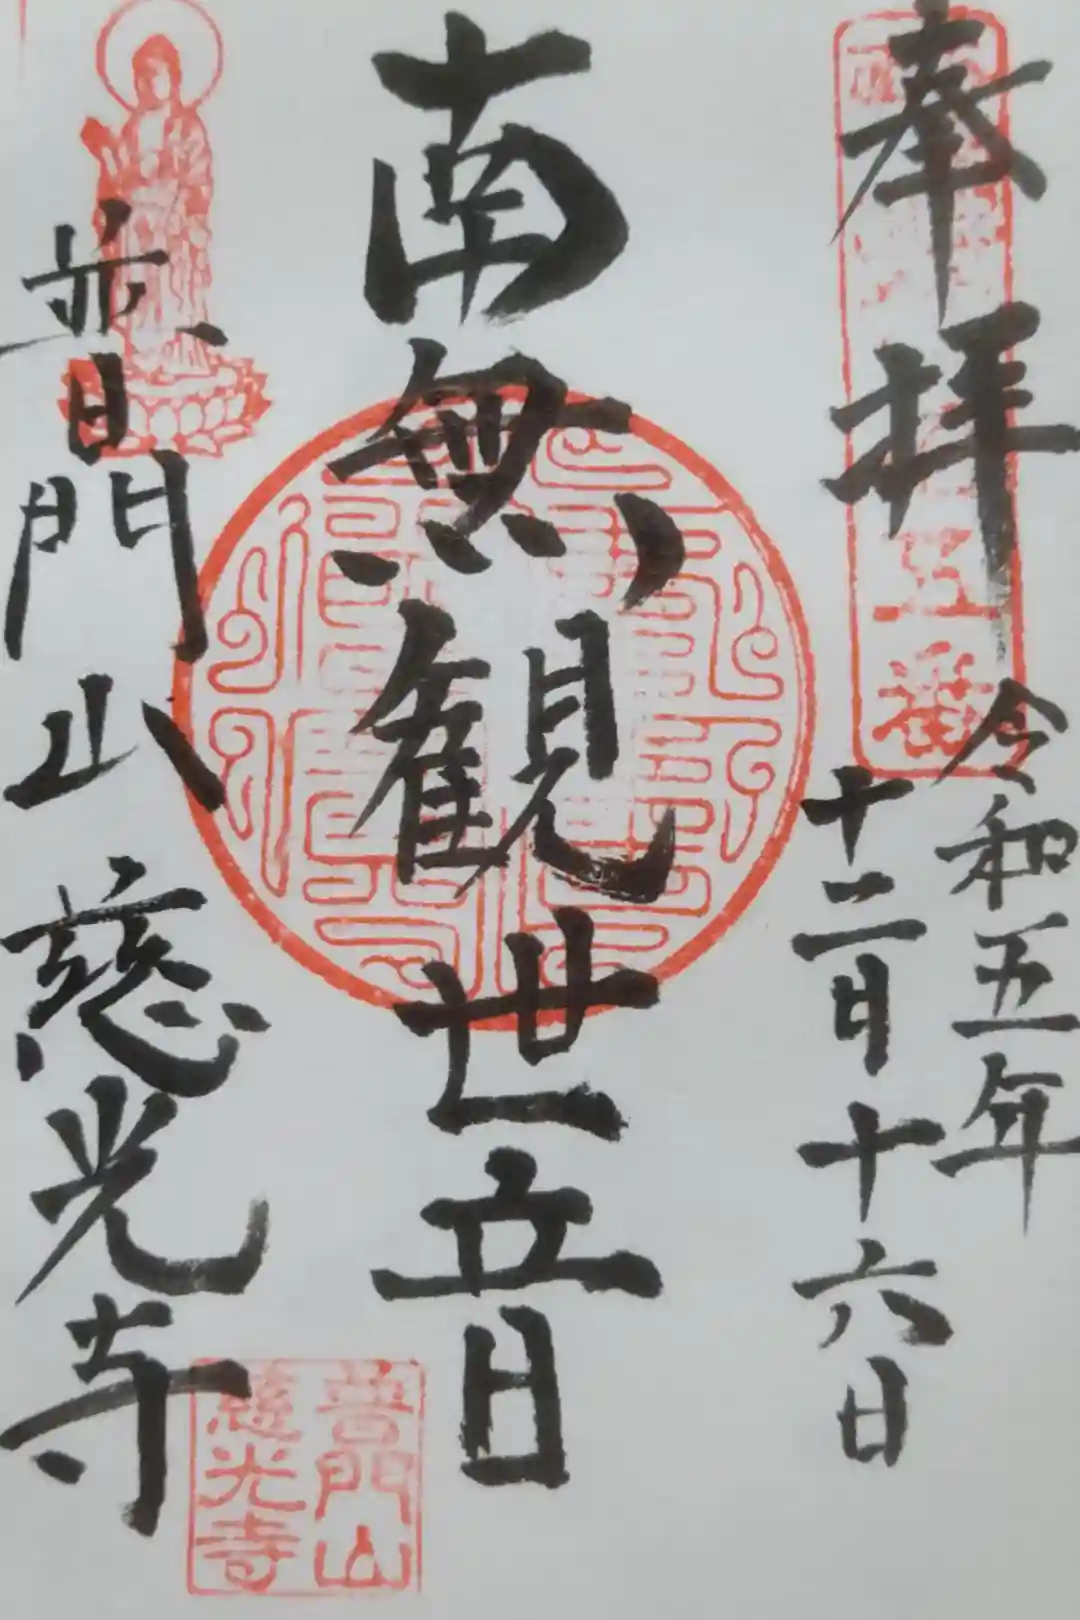 奉拝
令和五年
十二月十六日
南無観世音
普門山慈光寺
五番
普門山
慈光寺